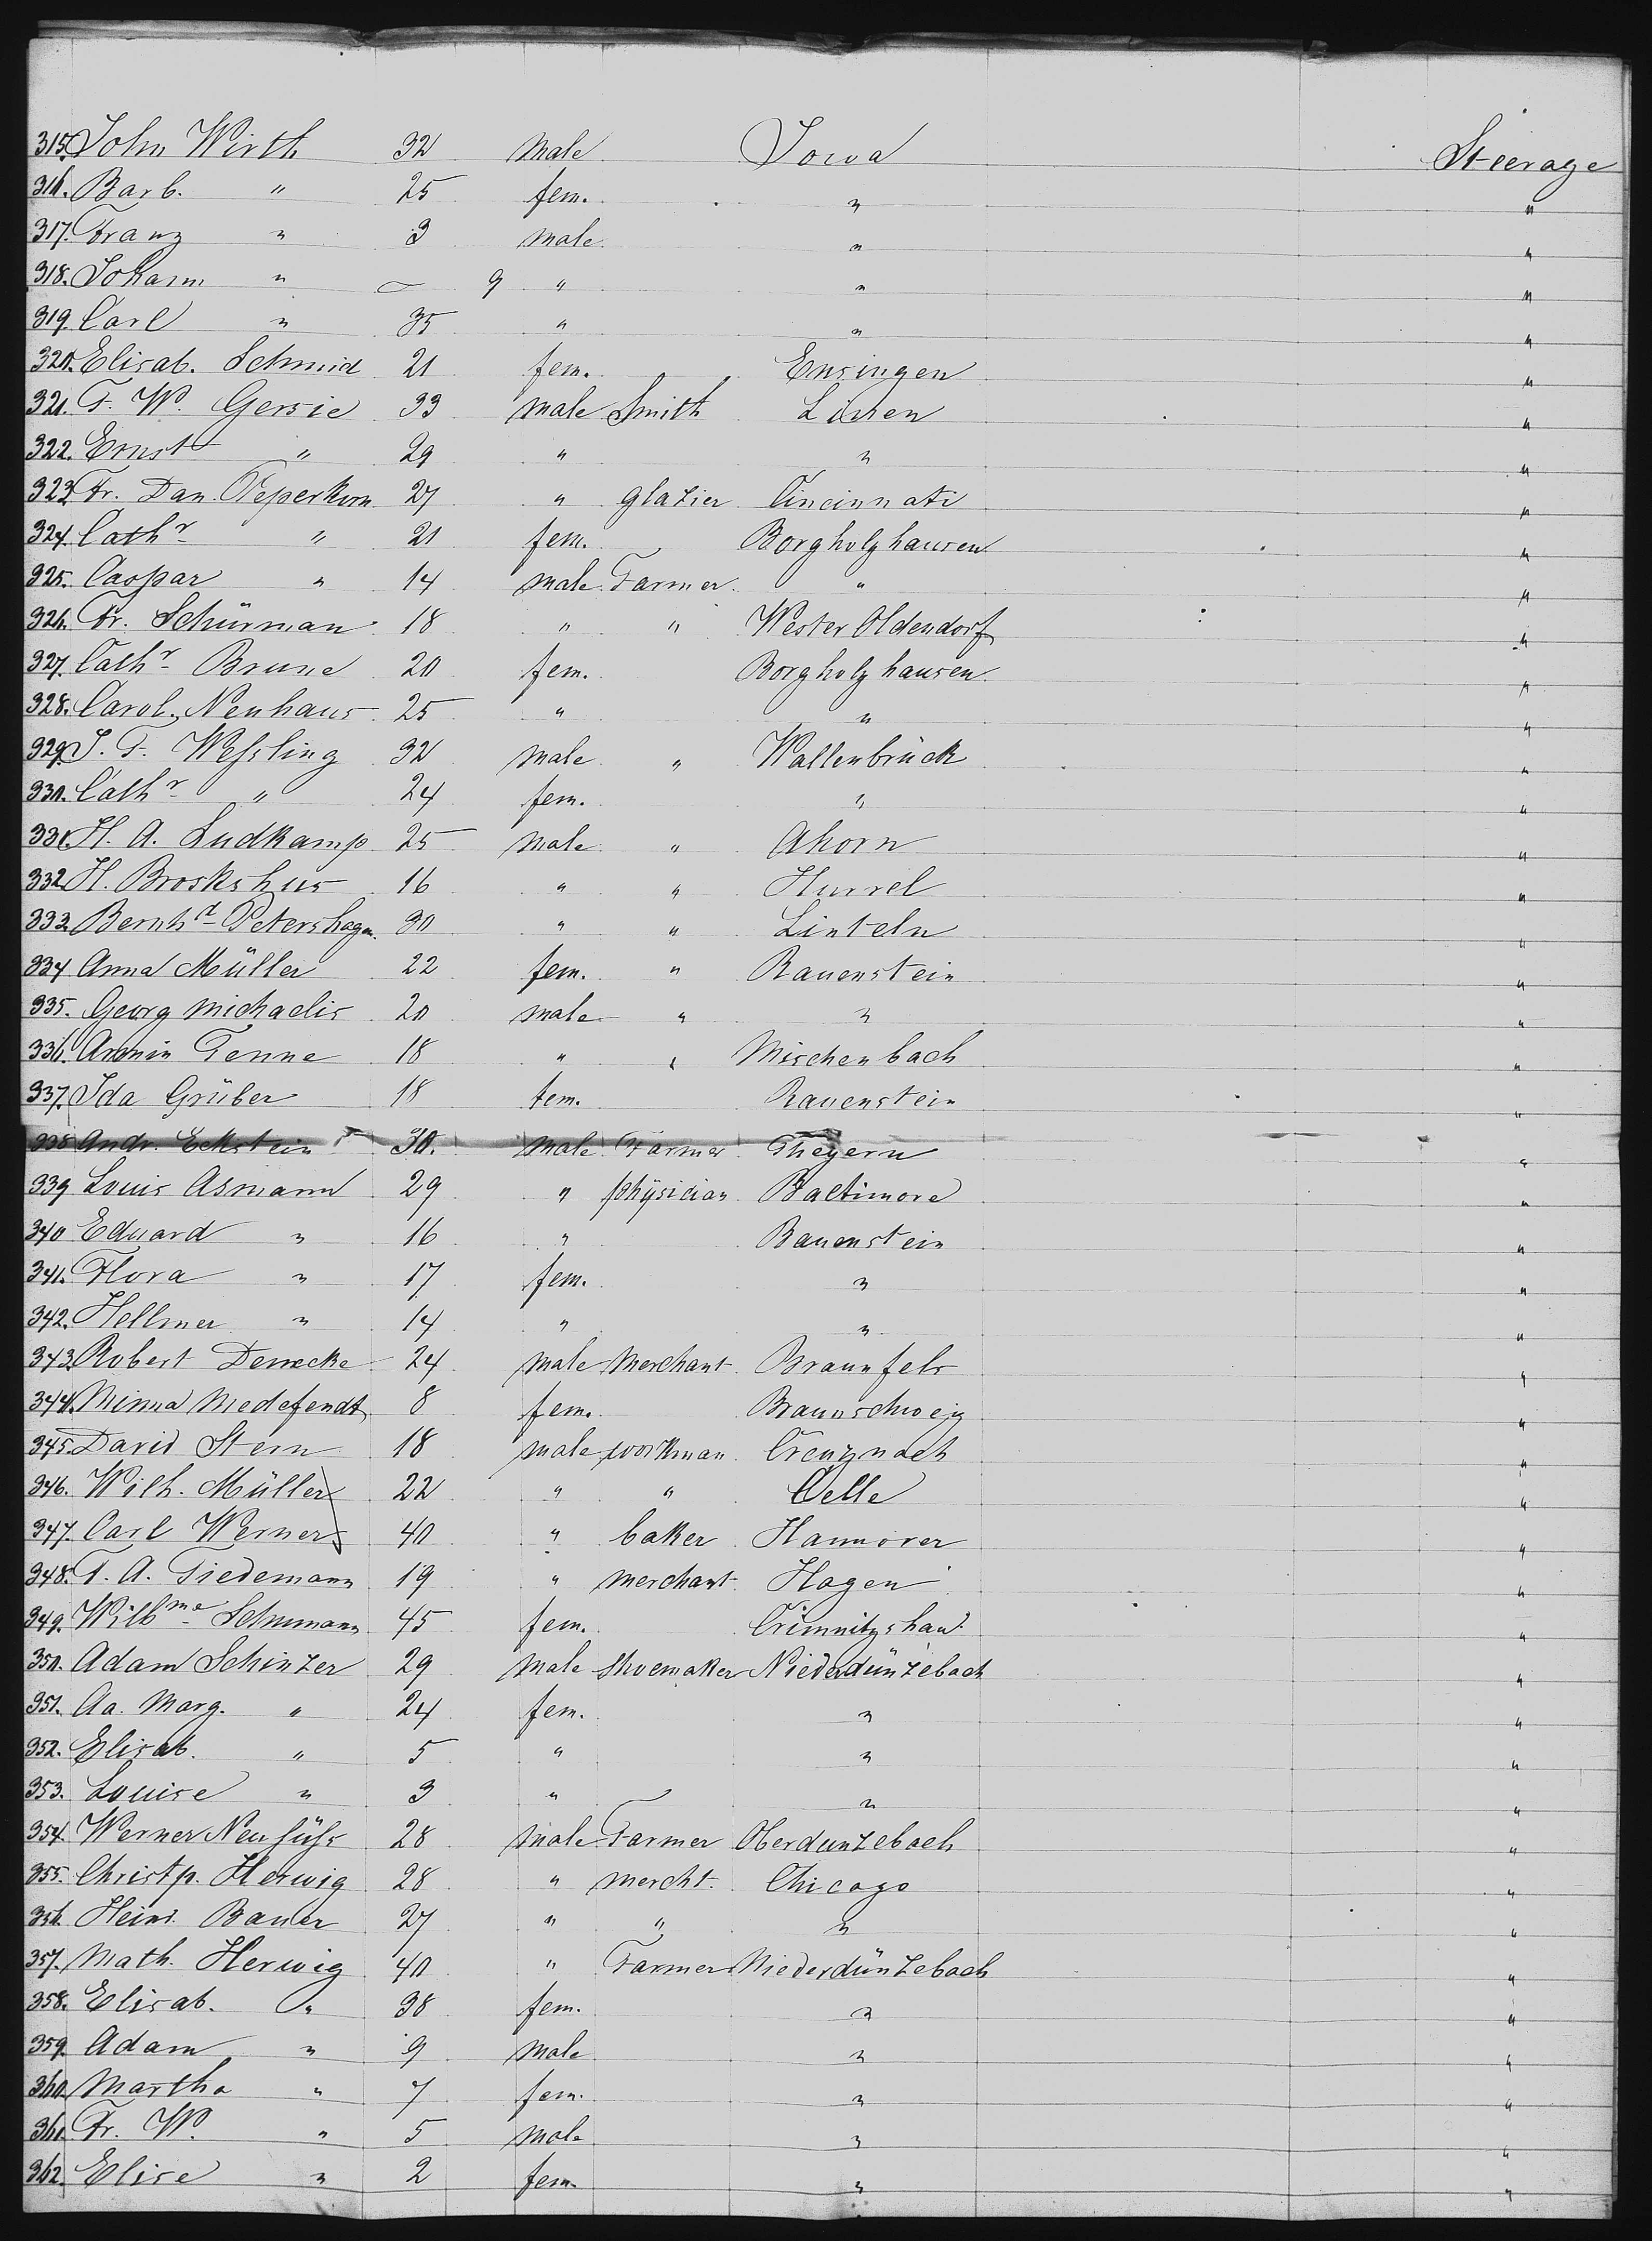 315. John Wirth 32 male Iowa Steerage
316. Barb. " 25 fem. " "
317. Franz " 3 male " "
318. Johann " – 9 " " "
319. Carl " 35 " " "
320. Elisab. Schmid 21 fem. Ensingen "
321. F. W. Gersie 33 male Smith Linen "
322. Ernst " 29 " " "
323. Fr. Dan. Peperkorn 27 " glazier Cincinnati "
324. Cathr " 21 fem. Borgholzhausen "
325. Caspar " 14 male Farmer " "
326. Fr. Schürman 18 " " Wester Oldendorf "
327. Cathr Brune 20 fem. Borgholzhausen "
328. Carol. Neuhaus 25 " " "
329. J. F. Weſsling 32 male " Wallenbrück "
330. Cathr " 24 fem. " "
331. H. A. Ludkamp 25 male " Ahorn "
332. H. Brokshus 16 " " Hurrel "
333. Bernhd Petershagn. 30 " " Linteln "
334 Anna Müller 22 fem. " Rauenstein "
335. Georg Michaelis 20 male " " "
336. Armin Tenne 18 " " Mischenbach "
337. Ida Grüber 18 fem. Rauenstein "
338 Andr. Eckstein 30. male Farmer Theyern "
339 Louis Asmann 29 " physician Baltimore "
340 Eduard " 16 " Rauenstein "
341. Flora " 17 fem. " "
342. Hellmer " 14 " " "
343. Robert Denecke 24 male Merchant Braunfels "
344. Minna Medefendt 8 fem. Braunschweig "
345. David Stern 18 male workman Creuznach "
346. Wilh. Müller 22 " " Celle "
347. Carl Werner 40 " baker Hannover "
348. T. A. Tiedemann 19 " merchant Hagen "
349. Wilhme Schumann 45 fem. Crimnitzshau "
350. Adam Schinzer 29 male shoemaker Niederdünzebach "
351. Aa. Marg. " 24 fem. " "
352. Elisab. " 5 " " "
353. Louise " 3 " " "
354. Werner Neusüſs 28 male Farmer Oberdünzebach "
355. Christp. Herwig 28 " mercht. Chicago "
356. Heinr. Bauer 27 " " " "
357. Math. Herwig 40 " Farmer Niederdünzebach "
358. Elisab. " 38 fem. " "
359. Adam " 9 male " "
360. Martha " 7 fem. " "
361. Fr. W. " 5 male " "
362. Elise " 2 fem. " "